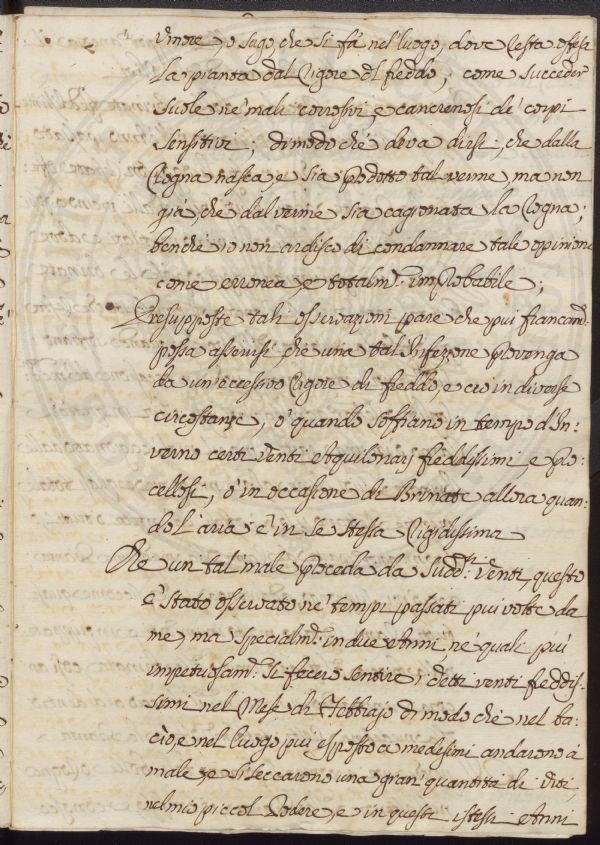 umore, o sugo, che si fà nel luogo, dove resta offesa
la pianta dal rigore del freddo, come succeder
suole ne' mali corrosivi, e cancrenosi de' corpi
sensitivi; dimodoché deva dirsi, che dalla
Rogna nasca, e sia prodotto tal verme, ma non
già che dal verme sia cagionata la Rogna;
benche io non ardisco di condannare tale opinione
come erronea, e totalm.e improbabile;
Presupposte tali osservazioni pare che piu francam.e
possa asserirsi, che una tal Infezzione provenga
da un eccessivo rigore di freddo, e ciò in diverse
circostanze, o' quando soffiano in tempo d'In-
verno certi venti Aquilonarj freddissimi, e pro-
cellosi, o' in occasione di Brinate allora quan-
do l'aria è in se stessa rigidissima
Che un tal male proceda da sud.i venti, questo
è stato osservato ne' tempi passati piu volte da
me, ma specialm.e in due Anni, ne' quali più
impetuosam.e si fecero sentire i detti venti freddis-
simi nel Mese di Febbrajo dimodochè nel ba-
cìo, e nel luogo piu esposto a medesimi andarono à
male, e si seccarono una gran' quantità di viti,
nel mio piccol Podere, e in questi istessi Anni